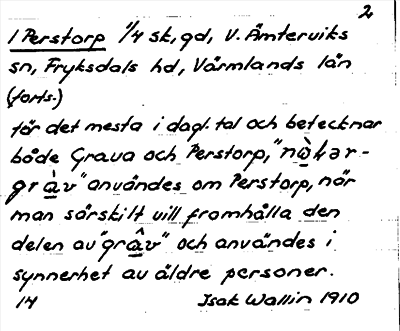 2
1 Perstorp 1/4 sk, gd, V. Ämterviks
sn, Fryksdals hd, Värmlands län
(forts.)
för det mesta i dagl. tal och betecknar
både Grava och Perstorp,
gràv" användes om Perstorp, när
man särskilt vill framhålla den
delen av "grâv" och användes i
synnerhet av äldre personer.
14 Isak Wallin 1910